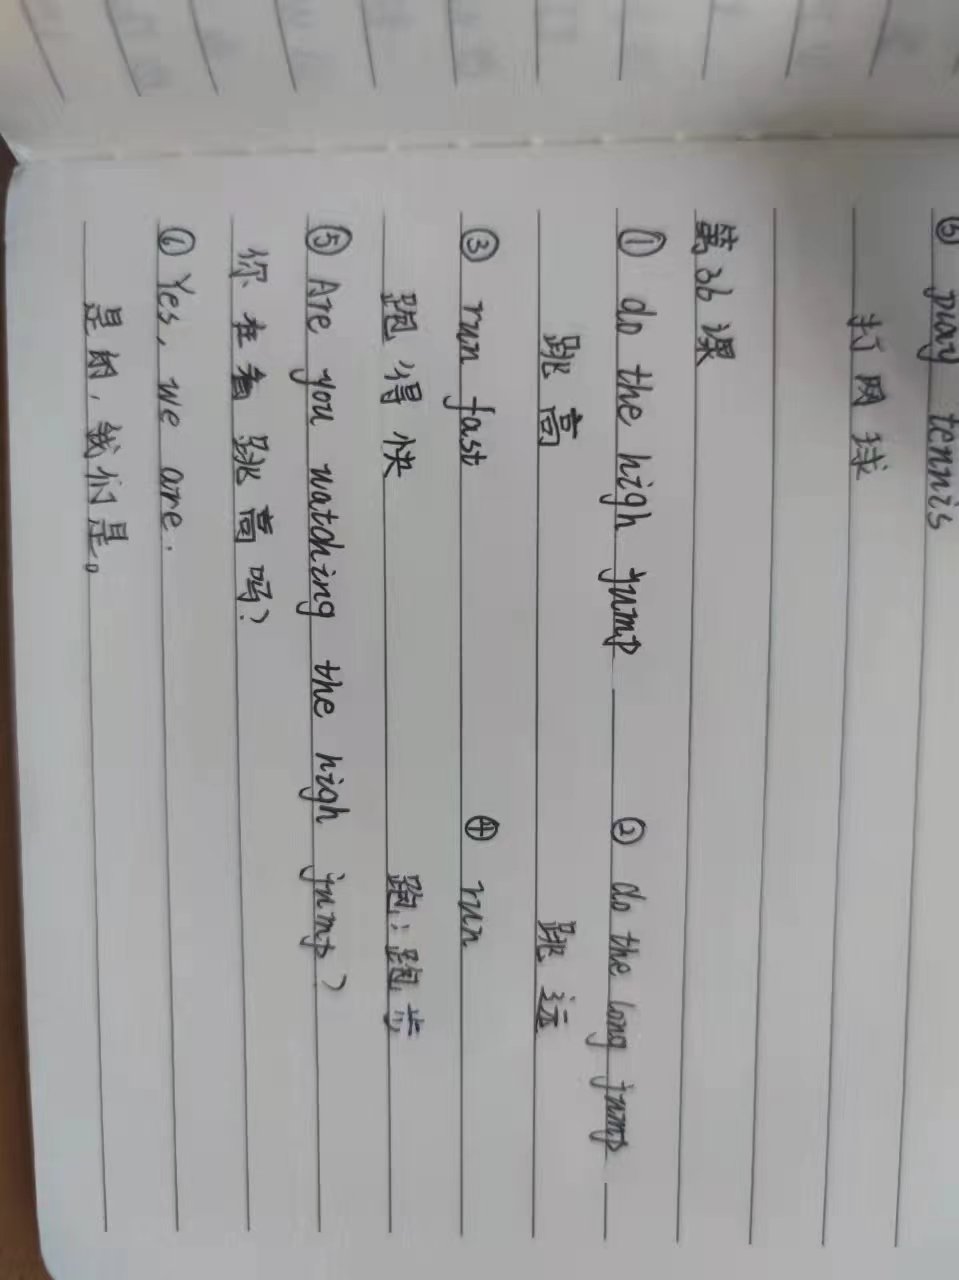 ⑤ play tennis
打网球
第36课
① do the high jump ② do the long jump
跳高 跳远
③ run fast ④ run
跑得快 跑;跑步
⑤ Are you watching the high jump?
你在看跳高吗?
⑥ Yes, we are.
是的,我们是。